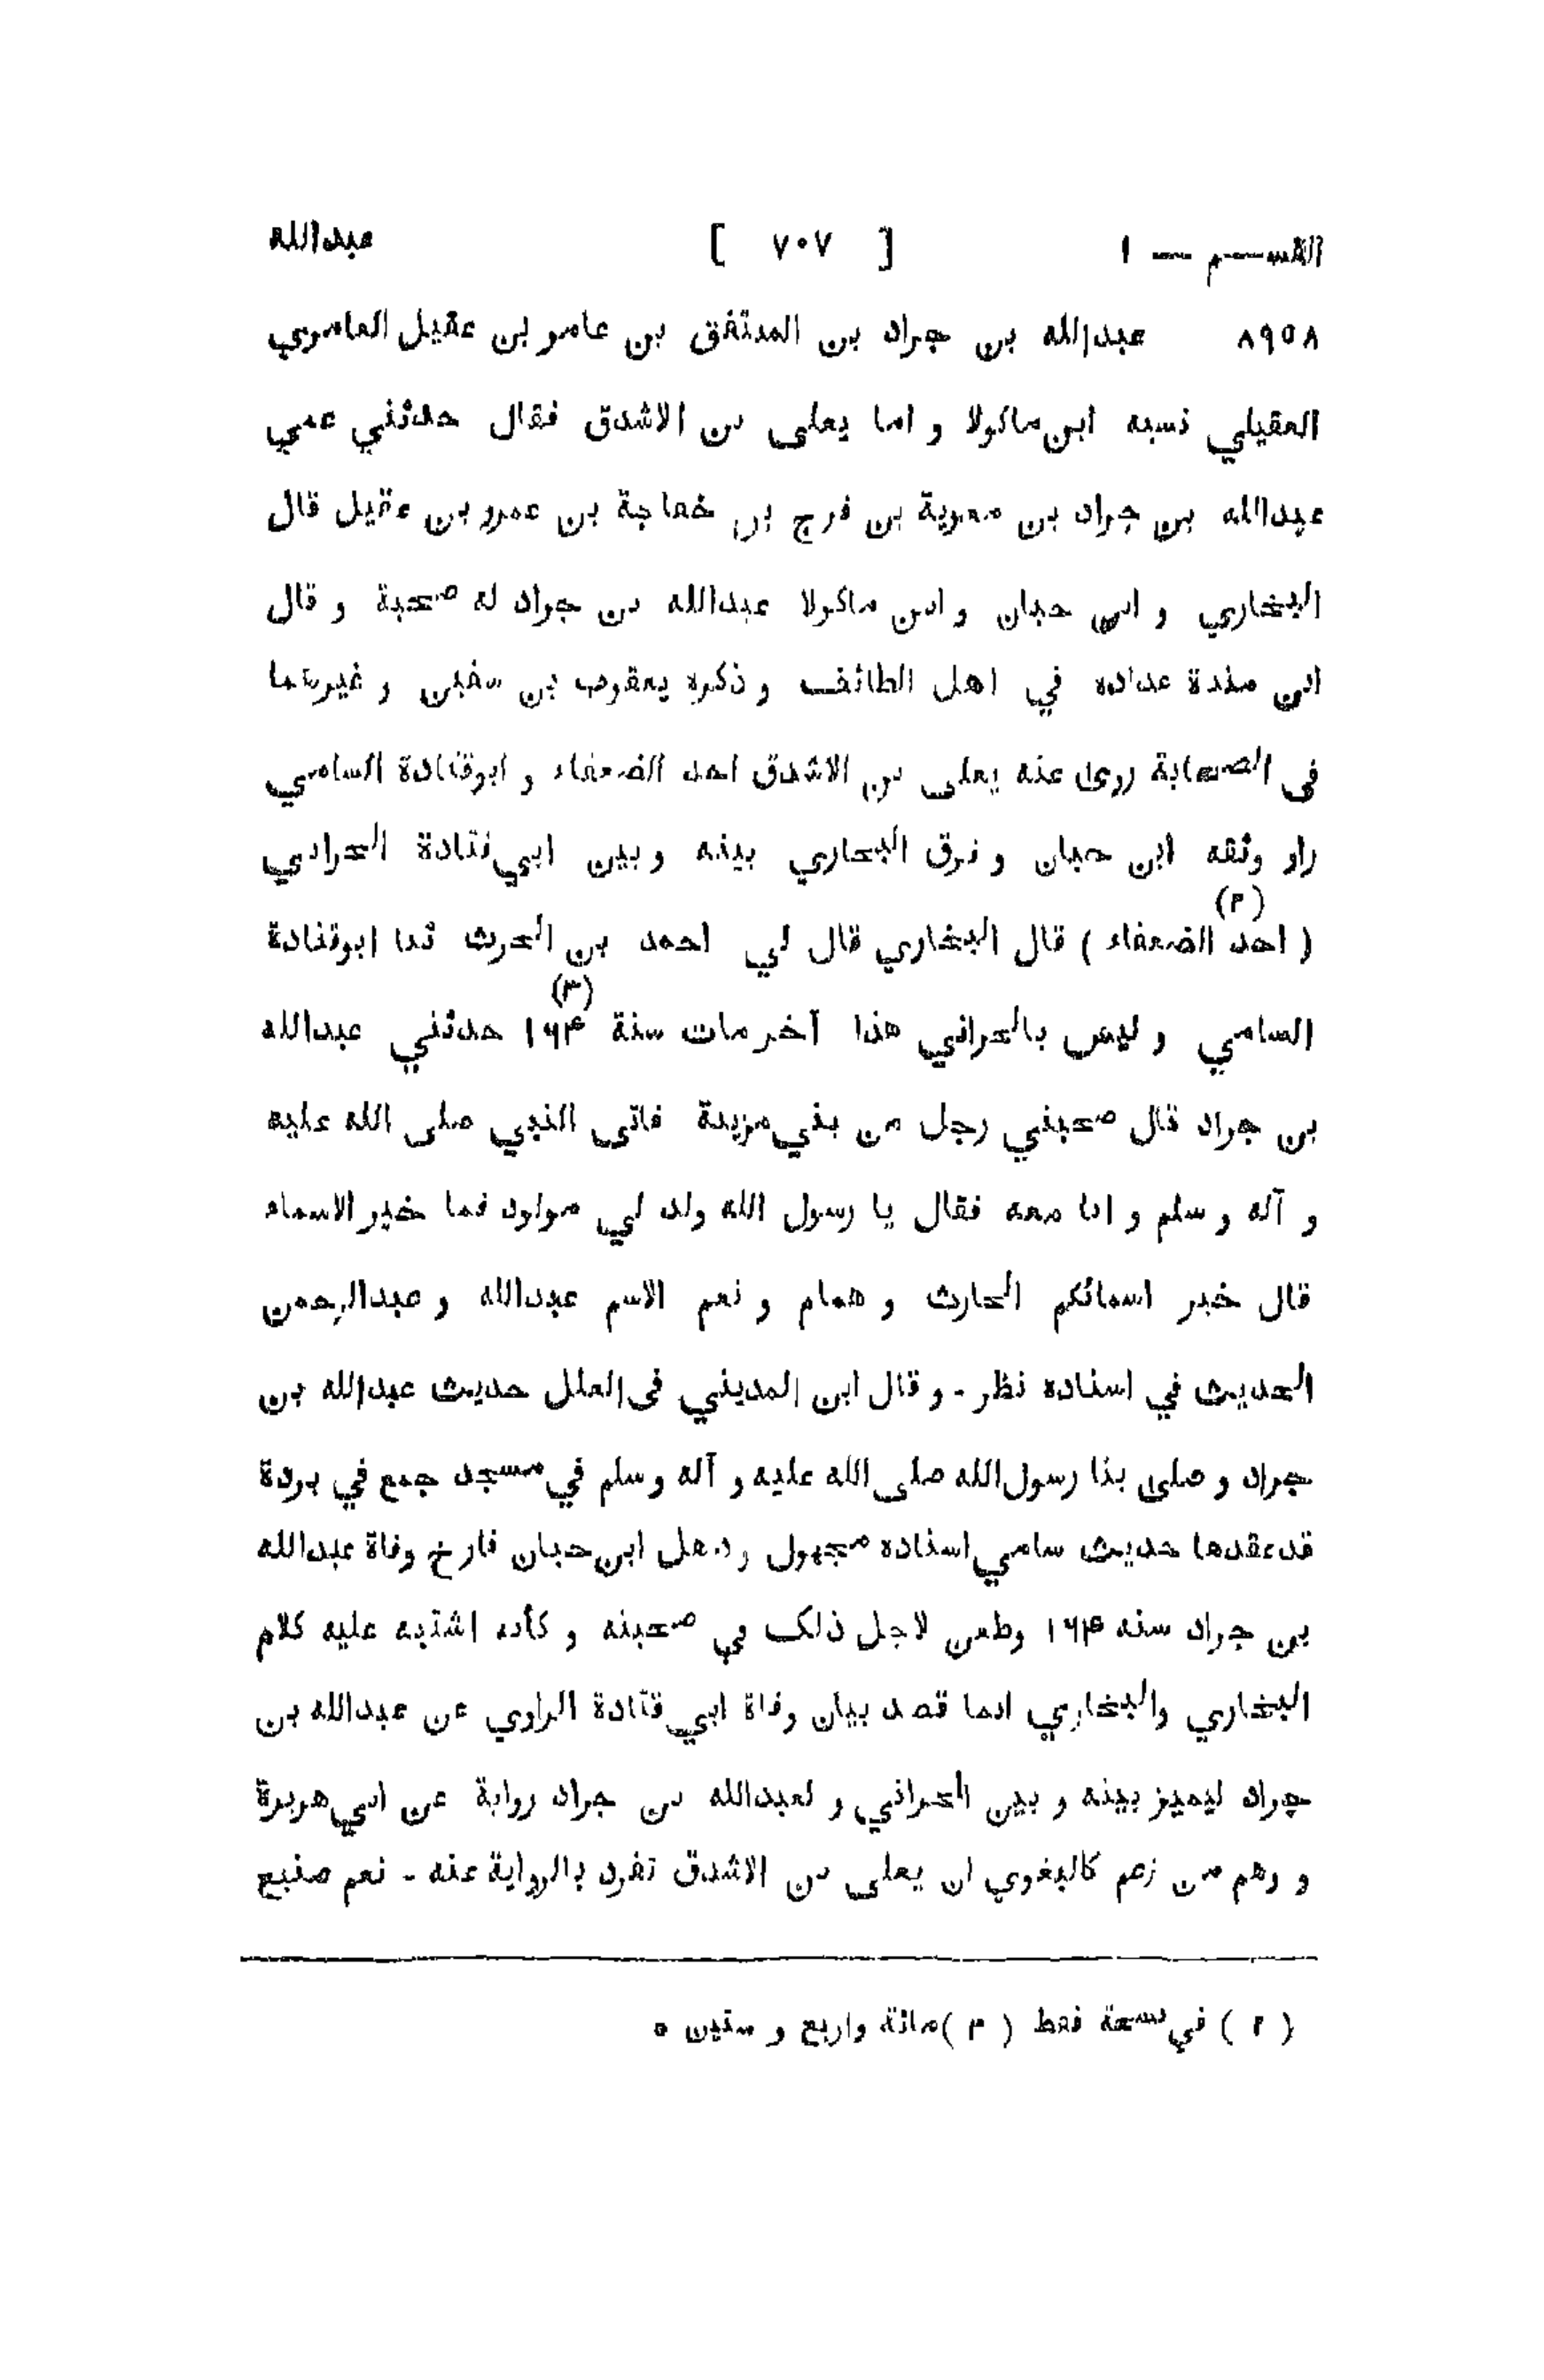 القسم — ١ [ ٧٠٧ ] عبدالله
٨٩٥٨ عبدالله بن جراد بن المنتفق بن عامر بن عقيل العامري
العقيلي نسبه ابن ماكولا و اما يعلى بن الاشدق فقال حدثني عمي
عبدالله بن جراد بن معوية بن فرج بن خفاجة بن عمرو بن عقيل قال
البخاري و ابن حبان و ابن ماكولا عبدالله بن جراد له صحبة و قال
ابن مندة عداده في اهل الطائف و ذكره يعقوب بن سفين و غيرهما
فى الصحابة روى عنه يعلى بن الاشدق احد الضعفاء و ابوقتادة الشامي
راو وثقه ابن حبان و فرق البخاري بينه و بين ابي قتادة الحراني
(٢)
( احد الضعفاء ) قال البخاري قال لي احمد بن الحرث ثنا ابوقتادة
(٣)
الشامي و ليس بالحراني هذا آخر مات سنة ١٦۴ حدثني عبدالله
بن جراد قال صحبني رجل من بني مزينة فاتى النبي صلى الله عليه
و آله و سلم و انا معه فقال يا رسول الله ولد لي مولود فما خير الاسماء
قال خير اسمائكم الحارث و همام و نعم الاسم عبدالله و عبدالرحمن
الحديث في اسناده نظر - و قال ابن المديني فى العلل حديث عبدالله بن
جراد و صلى بنا رسول الله صلى الله عليه و آله و سلم في مسجد جمع في بردة
قد عقدها حديث شامي اسناده مجهول و ذهل ابن حبان فارخ وفاة عبدالله
بن جراد سنه ١٦۴ وطعن لاجل ذلك في صحبته و كأنه اشتبه عليه كلام
البخاري والبخاري انما قصد بيان وفاة ابي قتادة الراوي عن عبدالله بن
جراد ليميز بينه و بين الحراني و لعبدالله بن جراد رواية عن ابي هريرة
و وهم من زعم كالبغوي ان يعلى بن الاشدق تفرد بالرواية عنه - نعم صنيع
( ٢ ) في نسخة فقط ( ٣ ) مائة واربع و ستين ٥